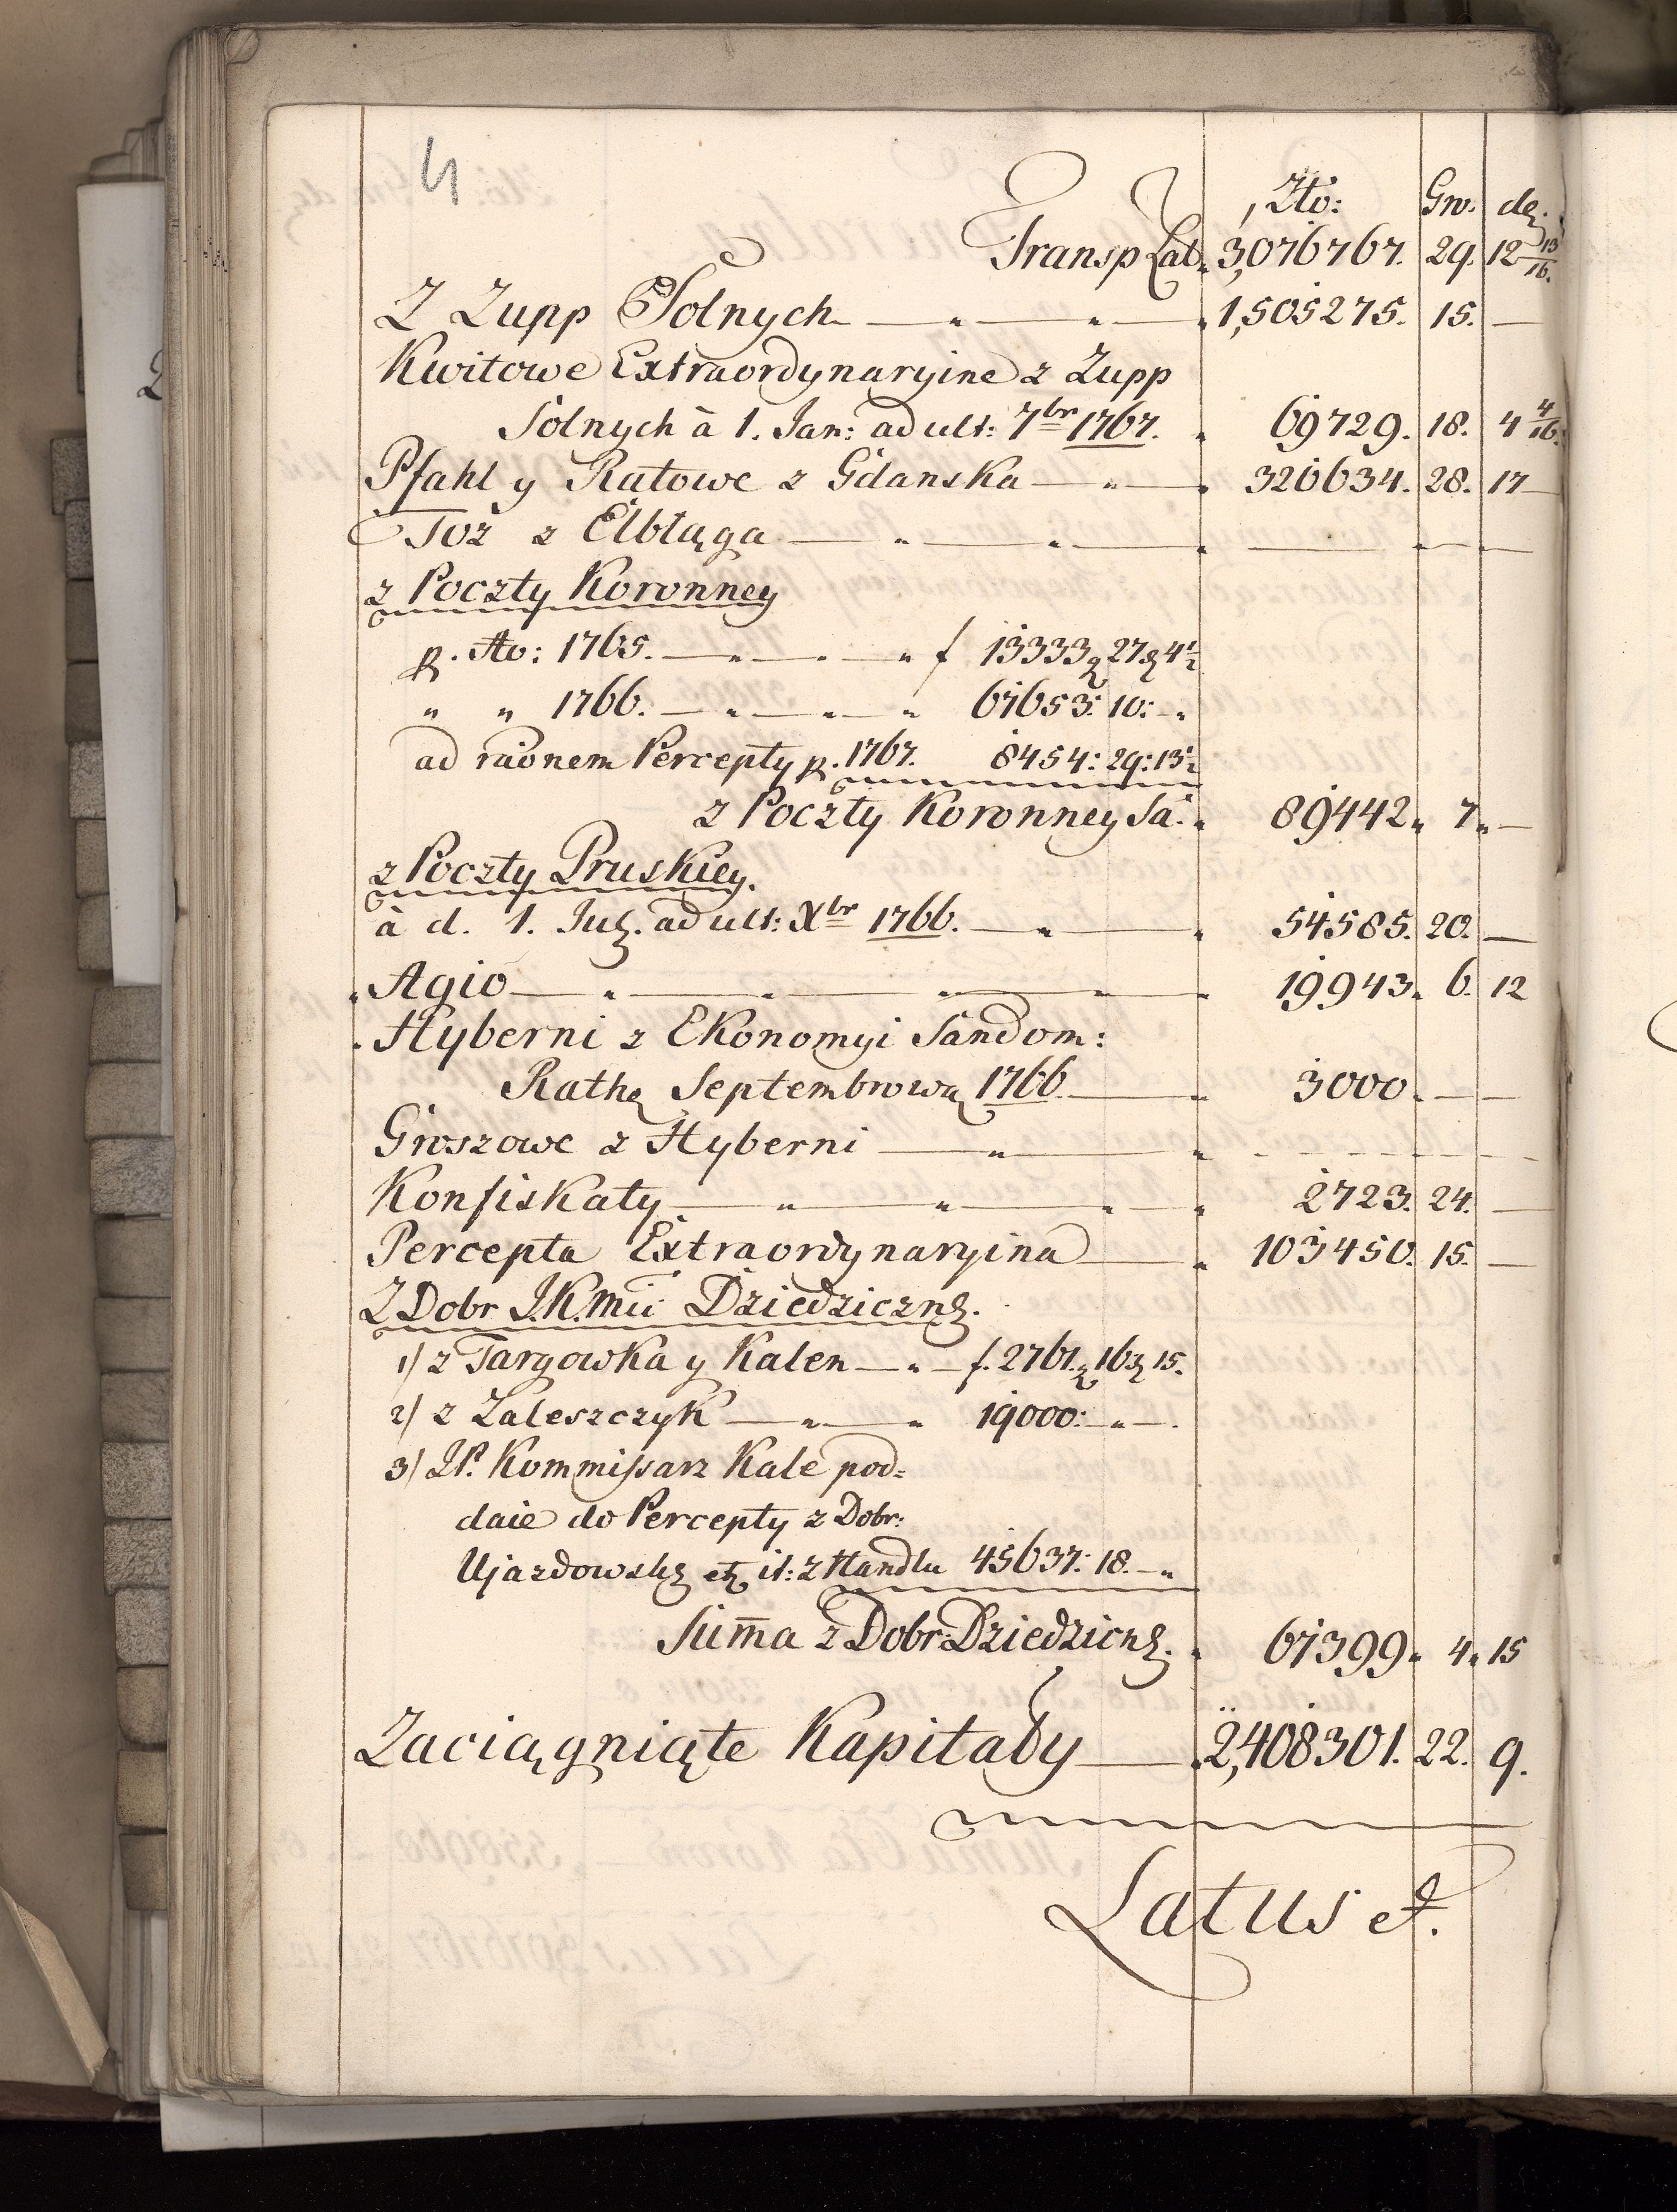 4
Zło: Gro. de.
Transp Lat. 3,076767. 29. 12 13/16.
Z Zupp Solnych 1,505275. 15. —
Kwitowe Extraordynaryine z Zupp
Solnych à 1. Jan: ad ult: 7br 1767. 69729. 18. 4 4/16.
Pfahl y Ratowe z Gdanska 326634. 28. 17
Toż z Elbląga — — —
z Poczty Koronney
p. Ao: 1765. f 13333 g 27 ₰ 4 1/2
" " 1766. 67653: 10: - "
ad raōnem Percepty p. 1767. 8454: 29: 13 1/2
z Poczty Koronney Sa. 89442. 7. —
z Poczty Pruskiey.
à d. 1. Jul. ad ult: Xbr 1766. 54585. 20. —
Agio 19943. 6. 12
Hyberni z Ekonomyi Sandom:
Rathą Septembrową 1766. 3000. — —
Groszowe z Hyberni — — —
Konfiskaty 2723. 24. —
Percepta Extraordynaryina 103450. 15. —
Z Dobr J.K.Mci Dziedziczn.
1) z Targowka y Kalen f. 2761. g 16 ₰ 15.
2) z Zaleszczyk 19000: " —.
3) JP. Kommissarz Kale pod=
daie do Percepty z Dobr:
Ujazdowsk et it: z Handlu 45637: 18. — "
Suma z Dobr: Dziedziczn. 67399. 4. 15
Zaciągniąte Kapitały 2,408301. 22. 9.
Latus et.